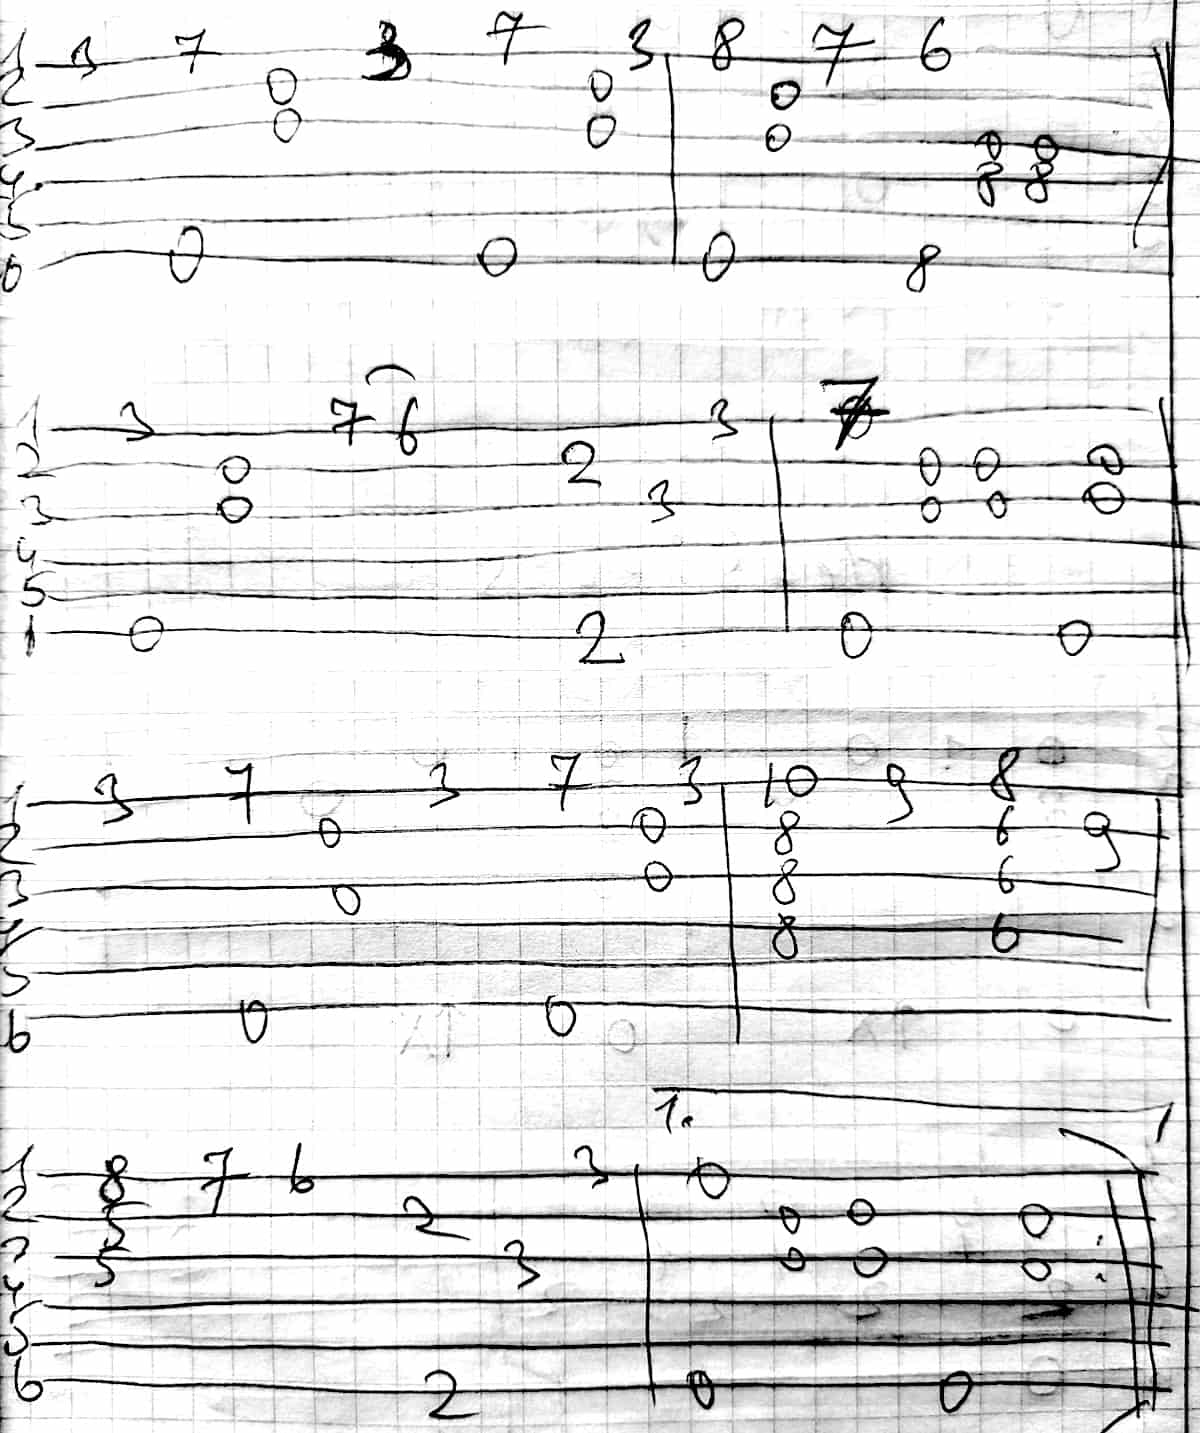 1 3 7 3 7 3 8 7 6
2 0 0 0
3 0 0 0 0 0
4 8 8
5
6 0 0 0 8
1 3 7 6 3 7
2 0 2 0 0 0
3 0 3 0 0 0
4
5
1 0 2 0 0
1 3 7 3 7 3 10 9 8
2 0 0 8 6 9
3 0 0 8 6
4 8 6
5
6 0 0
1.
1 8 7 6 3 0
2 5 2 0 0 0
3 5 3 0 0 0
4
5
6 2 0 0